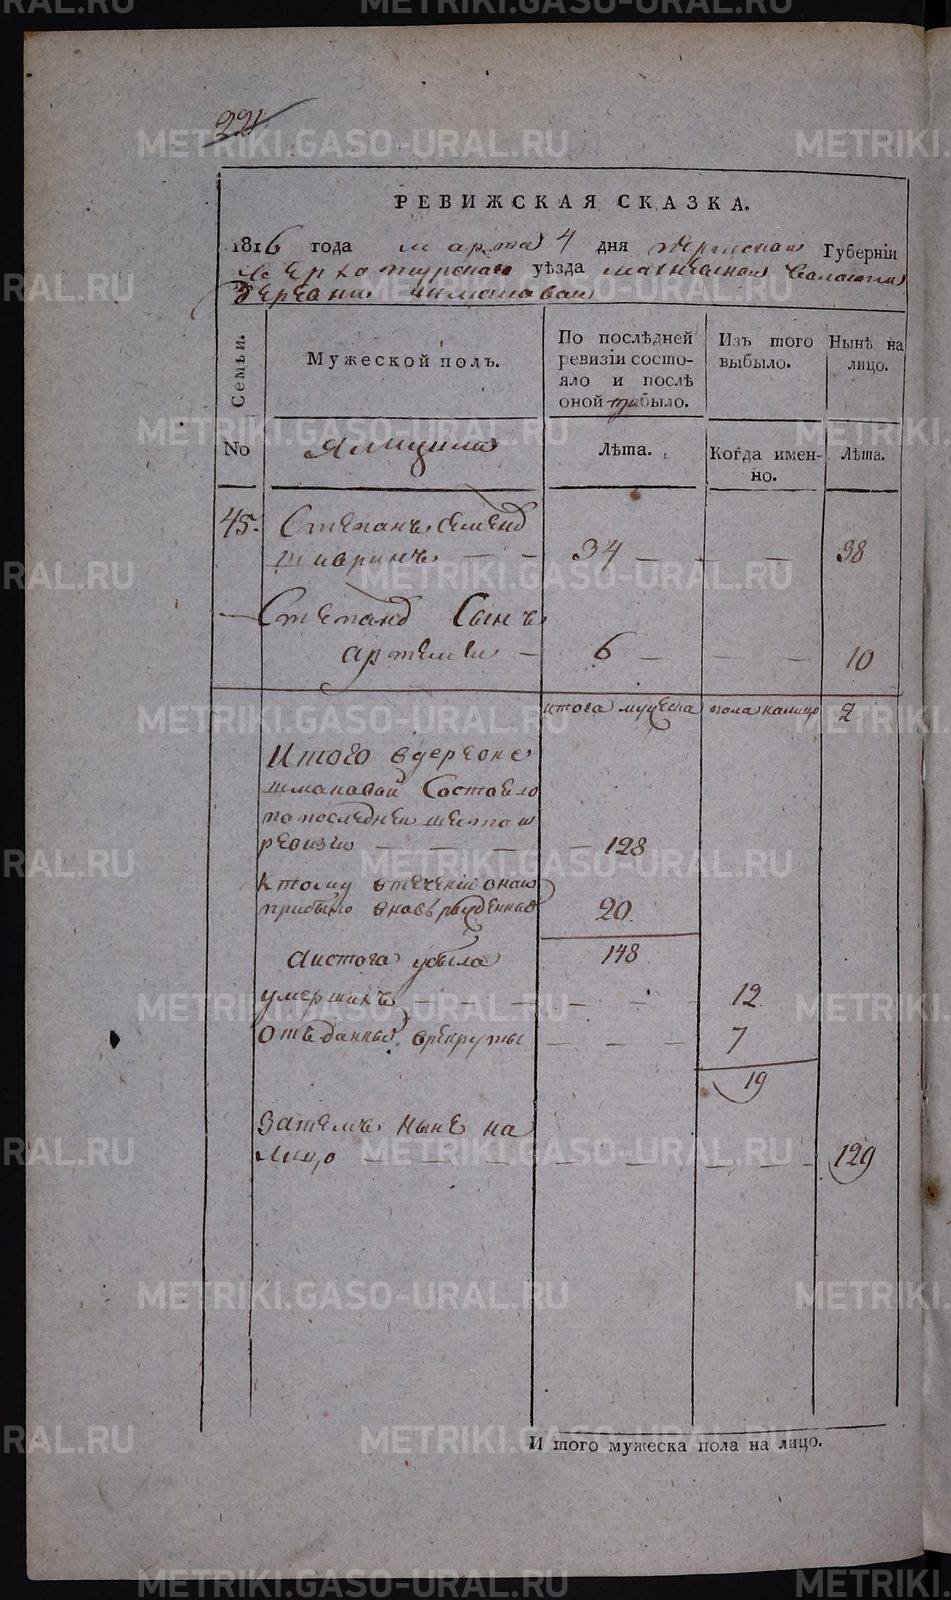 221
РЕВИЖСКАЯ СКАЗКА.
1816 года марта 4 дня Пермской Губернiи
Верхотурскаго уѣзда махневской Волости
деревни шмаковой
Семьи.
Мужеской полъ.
По послѣдней ревизiи состояло и послѣ оной прибыло.
Изъ того выбыло.
Нынѣ на лицо.
No
Ямщики
Лѣта.
Когда именно.
Лѣта.
45.
Степанъ семенд
шавринъ — — 34 — — 38
Степанд Сынъ
артемеи — 6 — — — 10
итого мужеска пола налицо 2
Итого вдеревне
шмаковой Состояло
попоследней шестой
ревизiи — — — — 128
Ктому втеченiи оной
прибыло вновь рожденныхъ 20
148
аистого убыло
умершихъ — — — — — — 12
отъданныхъ врекруты — — — 7
19
Затемъ Ныне на
лицо — — — — — — — 129
И того мужеска пола на лицо.
METRIKI.GASO-URAL.RU